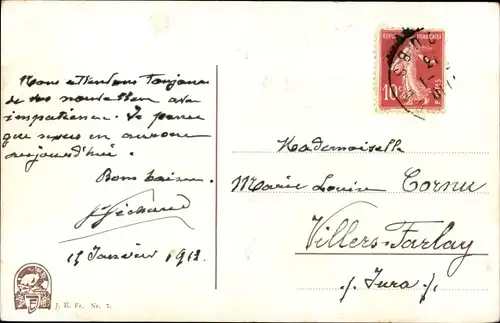 Nous attendons toujours
de vos nouvelles avec
impatience. Je pense
que nous en aurons
aujourd'hui.
Bons baisers.
15 Janvier 1912
J. K. Fr. Nr. 7.
REPUBLIQUE FRANÇAISE
10c
POSTES
Mademoiselle
Marie Louise Cornu
Villers-Farlay
Jura